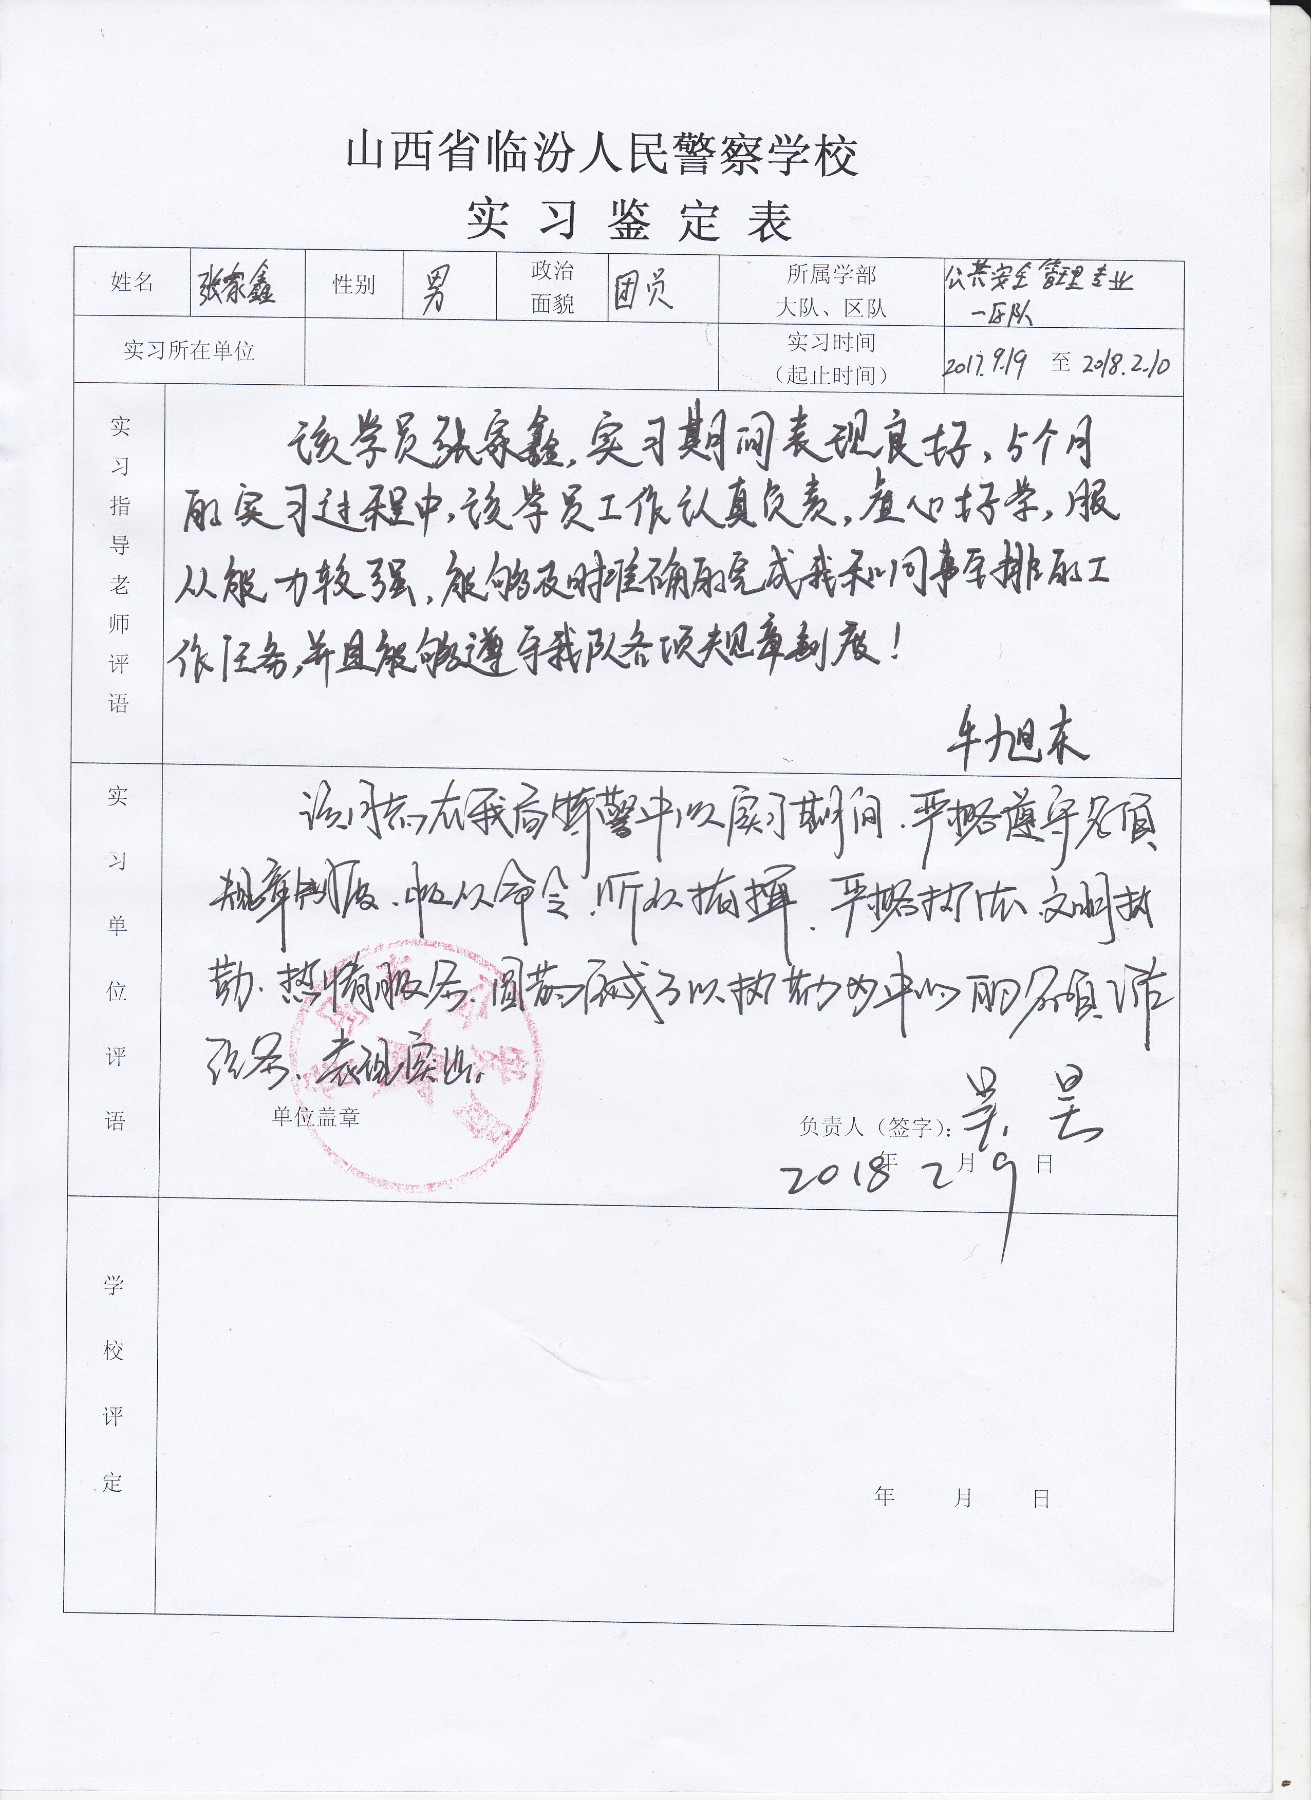 山西省临汾人民警察学校
实习鉴定表
姓名 张家鑫 性别 男 政治面貌 团员 所属学部大队、区队 公共安全管理专业一区队
实习所在单位 实习时间（起止时间） 2017.9.19 至 2018.2.10
实习指导老师评语
该学员张家鑫，实习期间表现良好，5个月
的实习过程中，该学员工作认真负责，虚心好学，服
从能力较强，能够及时准确的完成我和同事安排的工
作任务，并且能够遵守我队各项规章制度！
牛旭东
实习单位评语
该同志在我局特警中队实习期间，严格遵守各项
规章制度、服从命令、听从指挥、严格执法、文明执
勤、热情服务、圆满完成了以执勤为中心的各项工作
任务、表现突出。
单位盖章
负责人（签字）：吴昊
2018年2月9日
学校评定
年 月 日